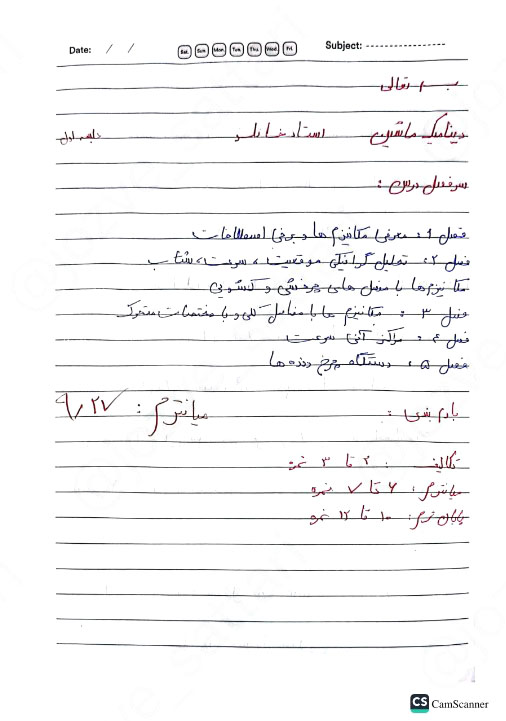 Date: / /
Sat. Sun. Mon. Tue. Thu. Wed. Fri.
Subject:
بسمه تعالی
دینامیک ماشین استاد جلسه اول
سرفصل درس :
فصل ۱ : معرفی مکانیزم ها و برخی اصطلاحات
فصل ۲ : تحلیل گرافیکی موقعیت ، سرعت ، شتاب
مکانیزم ها با مفصل های چرخشی و کشویی
فصل ۳ : مکانیزم ها با مفاصل کلی و با مختصات متحرک
فصل ۴ : مراکز آنی سرعت
فصل ۵ : دستگاه چرخ دنده ها
بارم بندی : میانترم : ۹/۲۷
تکالیف : ۲ تا ۳ نمره
میانترم : ۶ تا ۷ نمره
پایان ترم : ۱۰ تا ۱۲ نمره
CS CamScanner